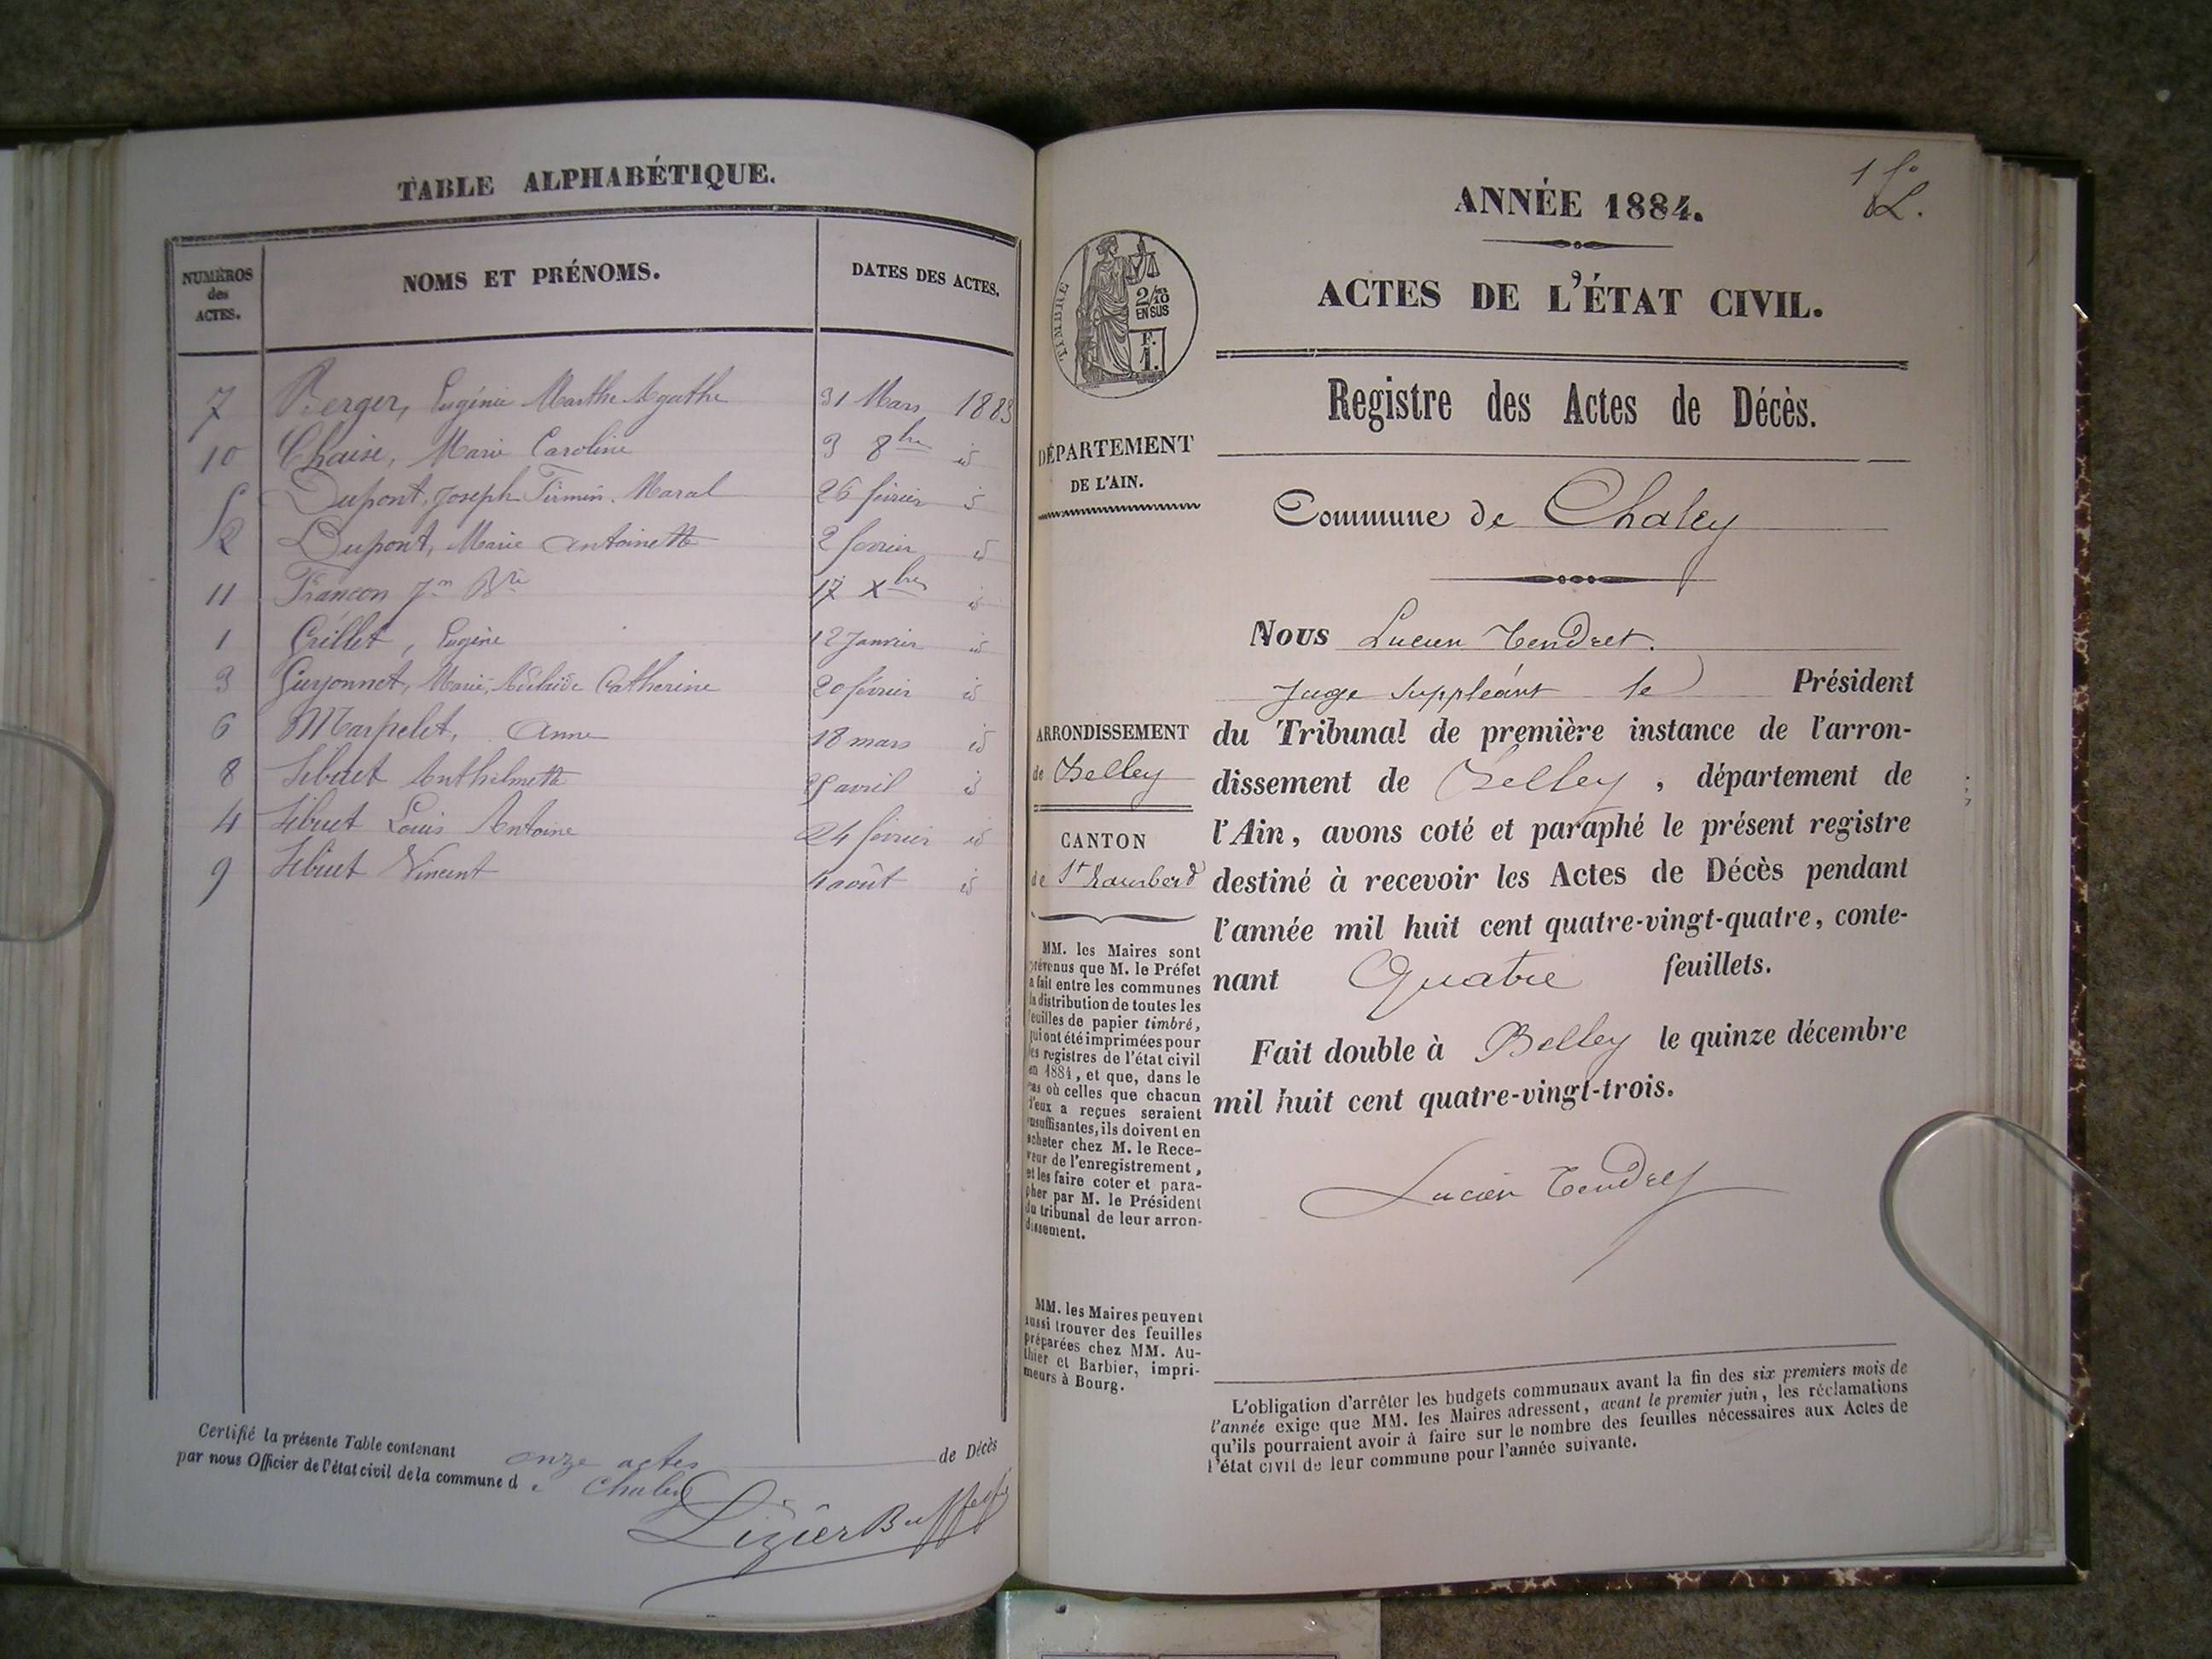 TABLE ALPHABÉTIQUE.
NUMÉROS des ACTES.
NOMS ET PRÉNOMS.
DATES DES ACTES.
7 Berger, Eugénie Marthe Agathe 31 Mars 1883
10 Chaise, Marie Caroline 3 8bre id
5 Dupont, Joseph Firmin Maral 26 février id
2 Dupont, Marie Antoinette 2 février id
11 Francon Jn Bte 17 Xbre id
1 Grillet, Eugène 12 Janvier id
3 Guyonnet, Marie, Adélaïde Catherine 20 février id
6 Marpelet, Anne 18 mars id
8 Sibuet Anthelmette avril id
4 Sibuet Louis Antoine 24 février id
9 Sibuet Vincent 4 août id
Certifié la présente Table contenant onze actes de Décès
par nous Officier de l'état civil de la commune de Chaley
Lizier Buffet
1 fo
L.
ANNÉE 1884.
ACTES DE L'ÉTAT CIVIL.
TIMBRE
2/10
EN SUS
F.
1.
Registre des Actes de Décès.
DÉPARTEMENT
DE L'AIN.
Commune de Chaley
Nous Lucien Tendret.
Juge suppléant le Président
du Tribunal de première instance de l'arron-
dissement de Belley, département de
l'Ain, avons coté et paraphé le présent registre
destiné à recevoir les Actes de Décès pendant
l'année mil huit cent quatre-vingt-quatre, conte-
nant Quatre feuillets.
Fait double à Belley le quinze décembre
mil huit cent quatre-vingt-trois.
Lucien Tendret
ARRONDISSEMENT
de Belley
CANTON
de St Rambert
MM. les Maires sont
prévenus que M. le Préfet
a fait entre les communes
la distribution de toutes les
feuilles de papier timbré,
qui ont été imprimées pour
les registres de l'état civil
en 1884, et que, dans le
cas où celles que chacun
d'eux a reçues seraient
insuffisantes, ils doivent en
acheter chez M. le Rece-
veur de l'enregistrement,
et les faire coter et para-
pher par M. le Président
du tribunal de leur arron-
dissement.
MM. les Maires peuvent
aussi trouver des feuilles
préparées chez MM. Au-
thier et Barbier, impri-
meurs à Bourg.
L'obligation d'arrêter les budgets communaux avant la fin des six premiers mois de
l'année exige que MM. les Maires adressent, avant le premier juin, les réclamations
qu'ils pourraient avoir à faire sur le nombre des feuilles nécessaires aux Actes de
l'état civil de leur commune pour l'année suivante.